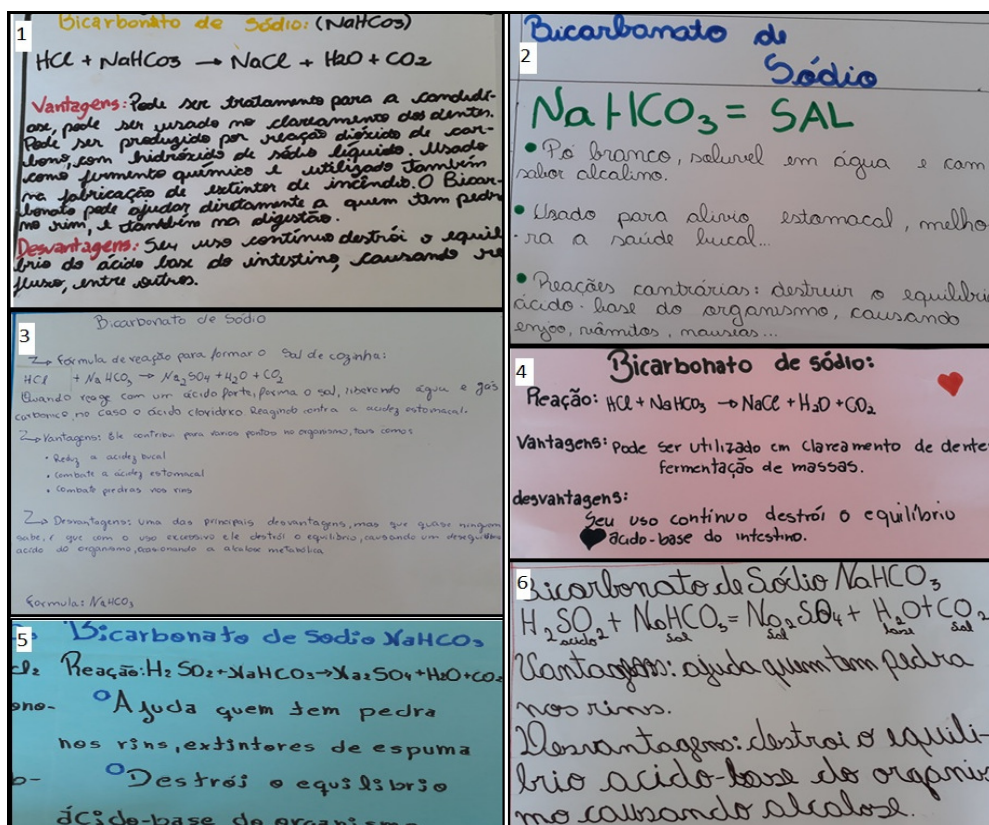 1
Bicarbonato de Sódio: (NaHCO3)
HCl + NaHCO3 → NaCl + H2O + CO2
Vantagens: Pode ser tratamento para a candidí-
ase, pode ser usado no clareamento dos dentes.
Pode ser produzido por reação dióxido de car-
bono, com hidróxido de sódio líquido. Usado
como fermento químico e utilizado também
na fabricação de extintor de incêndio. O Bicar-
bonato pode ajudar diretamente a quem tem pedra
no rim, e também na digestão.
Desvantagens: Seu uso contínuo destrói o equilí
brio do ácido base do intestino, causando re
fluxo, entre outros.
2
Bicarbonato de
Sódio
NaHCO3 = SAL
• Pó branco, solurel em água e com
sabor alcalino.
• Usado para alivio estomacal, melho
-ra a saúde bucal...
• Reações contrárias: destruir o equilíbri
ácido-base do organismo, causando
enjoo, vômitos, nauseas...
3
Bicarbonato de Sódio
Formula de reação para formar o Sal de cozinha:
HCl + NaHCO3 → Na2SO4 + H2O + CO2
Quando reage com um ácido forte, forma o sal, liberando água e gás
carbonico, no caso o ácido cloridrico. Reagindo contra a acidez estomacal.
Vantagens: Ele contribui para varios pontos no organismo, tais comos
• Reduz a acidez bucal
• Combate a acidez estomacal
• Combate predras nos rins
Desvantagens: uma das principais desvantagens, mas que quase ninguem
sabe, é que com o uso excessivo ele destrói o equilíbrio, causando um
acido do organismo, ocasionando a alcalose metabólica
Formula: NaHCO3
4
Bicarbonato de sódio:
Reação: HCl + NaHCO3 → NaCl + H2O + CO2
Vantagens: Pode ser utilizado em clareamento de dente
fermentação de massas.
desvantagens:
Seu uso contínuo destrói o equilíbrio
ácido-base do intestino.
5
Bicarbonato de Sodio NaHCO3
Cl2 Reação: H2SO2 + NaHCO3 → Na2SO4 + H2O + CO2
ono- Ajuda quem tem pedra
nos rins, extintores de espuma
Destrói o equilibrio
ácido-base do organismo
6
Bicarbonato de Sódio NaHCO3
H2SO2 + NaHCO3 = Na2SO4 + H2O + CO2
acido Sal Sal base Sal
Vantagem: ajuda quem tem pedra
nos rins.
Desvantagem: destroi o equili-
brio acido-base do organis
mo causando alcalose.